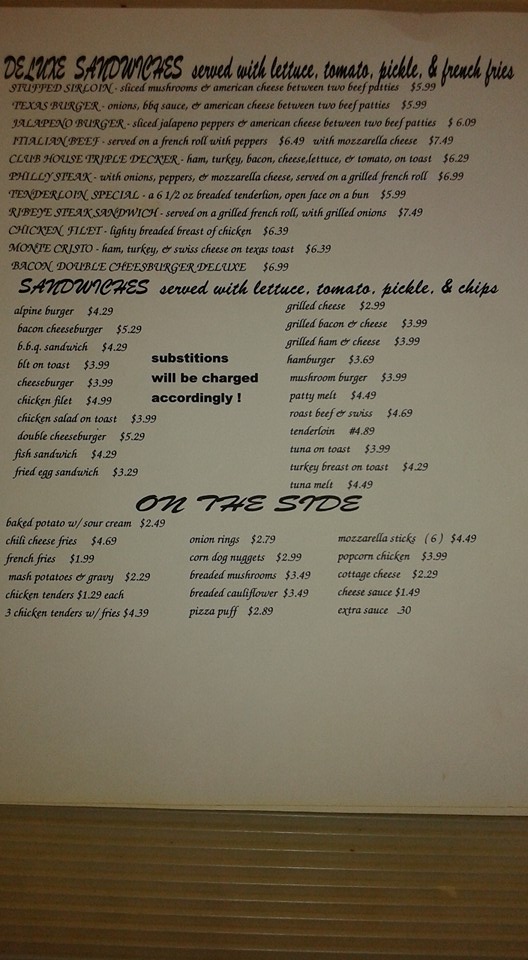 DELUXE SANDWICHES served with lettuce, tomato, pickle, & french fries
STUFFED SIRLOIN - sliced mushrooms & american cheese between two beef patties $5.99
TEXAS BURGER - onions, bbq sauce, & american cheese between two beef patties $5.99
JALAPENO BURGER - sliced jalapeno peppers & american cheese between two beef patties $ 6.09
ITIALIAN BEEF - served on a french roll with peppers $6.49 with mozzarella cheese $7.49
CLUB HOUSE TRIPLE DECKER - ham, turkey, bacon, cheese,lettuce, & tomato, on toast $6.29
PHILLY STEAK - with onions, peppers, & mozzarella cheese, served on a grilled french roll $6.99
TENDERLOIN SPECIAL - a 6 1/2 oz breaded tenderlion, open face on a bun $5.99
RIBEYE STEAK SANDWICH - served on a grilled french roll, with grilled onions $7.49
CHICKEN FILET - lighty breaded breast of chicken $6.39
MONTE CRISTO - ham, turkey, & swiss cheese on texas toast $6.39
BACON DOUBLE CHEESBURGER DELUXE $6.99
SANDWICHES served with lettuce, tomato, pickle, & chips
alpine burger $4.29
bacon cheeseburger $5.29
b.b.q. sandwich $4.29
blt on toast $3.99
cheeseburger $3.99
chicken filet $4.99
chicken salad on toast $3.99
double cheeseburger $5.29
fish sandwich $4.29
fried egg sandwich $3.29
substitions
will be charged
accordingly !
grilled cheese $2.99
grilled bacon & cheese $3.99
grilled ham & cheese $3.99
hamburger $3.69
mushroom burger $3.99
patty melt $4.49
roast beef & swiss $4.69
tenderloin #4.89
tuna on toast $3.99
turkey breast on toast $4.29
tuna melt $4.49
ON THE SIDE
baked potato w/ sour cream $2.49
chili cheese fries $4.69
french fries $1.99
mash potatoes & gravy $2.29
chicken tenders $1.29 each
3 chicken tenders w/ fries $4.39
onion rings $2.79
corn dog nuggets $2.99
breaded mushrooms $3.49
breaded cauliflower $3.49
pizza puff $2.89
mozzarella sticks ( 6 ) $4.49
popcorn chicken $3.99
cottage cheese $2.29
cheese sauce $1.49
extra sauce .30